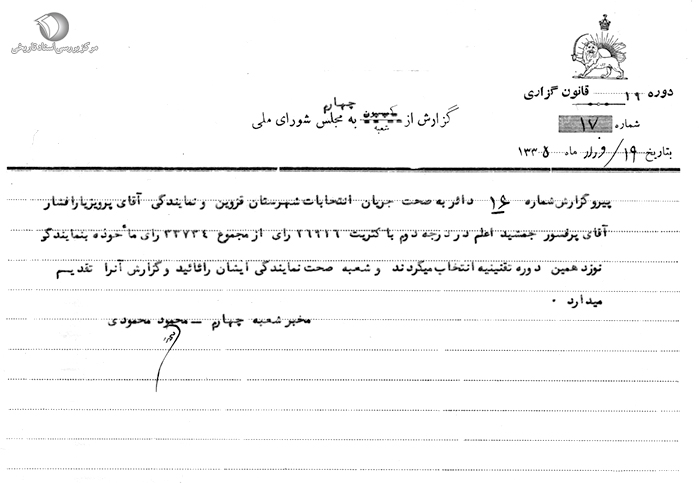 مرکز بررسی اسناد تاریخی
دوره ۱۹ قانون گزاری
گزارش از کمیسیون شعبه چهارم به مجلس شورای ملی
شماره ۱۷
بتاریخ ۱۹ ماه ۱۳۳۵
پیرو گزارش شماره ۱۶ دائر به صحت جریان انتخابات شهرستان قزوین و نمایندگی آقای پرویز یارافشار
آقای پرفسور جمشید اعلم در درجه دوم با کثریت ۲۶۹۱۶ رای از مجموع ۳۳۷۳۴ رای مأخوذه بنمایندگی
نوزدهمین دوره تقنینیه انتخاب میگردند و شعبه صحت نمایندگی ایشان را تائید و گزارش آنرا تقدیم
میدارد ۰
مخبر شعبه چهارم ــ محمود محمودی